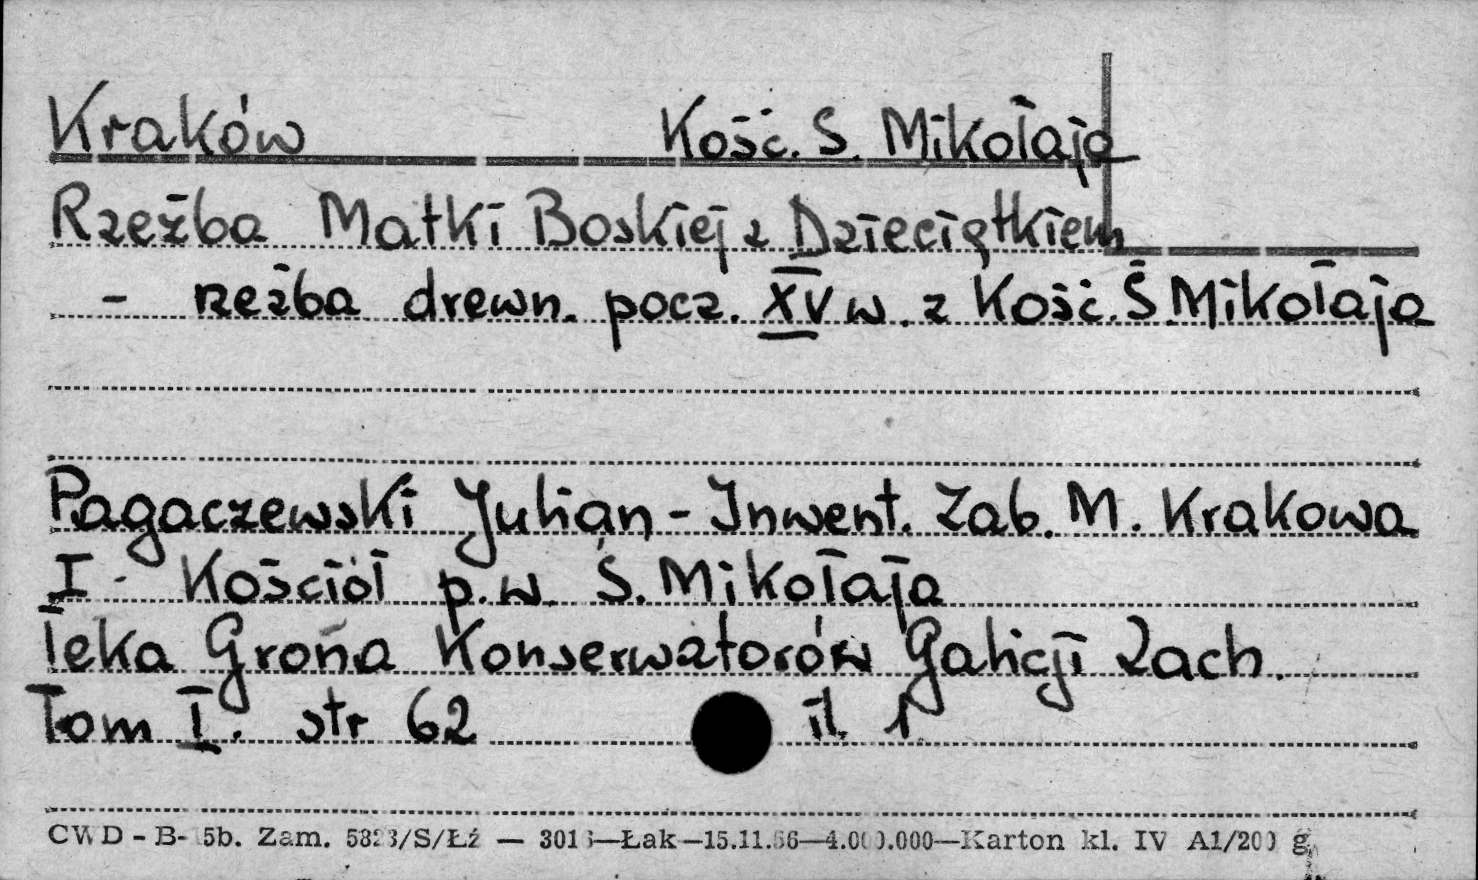 Kraków Kość. S. Mikołaja
Rzeźba Matki Boskiej z Dzieciątkiem
- rzeźba drewn. pocz. XV w. z Kość. Ś Mikołaja
Pagaczewski Julian - Inwent. Zab. M. Krakowa
I. Kościół p.w. Ś. Mikołaja
Teka Grona Konserwatorów Galicji Zach.
Tom I. str 62 il. 1
CWD - B- 5b. Zam. 5823/S/Łź — 3016—Łak—15.11.56—4.000.000—Karton kl. IV A1/200 g